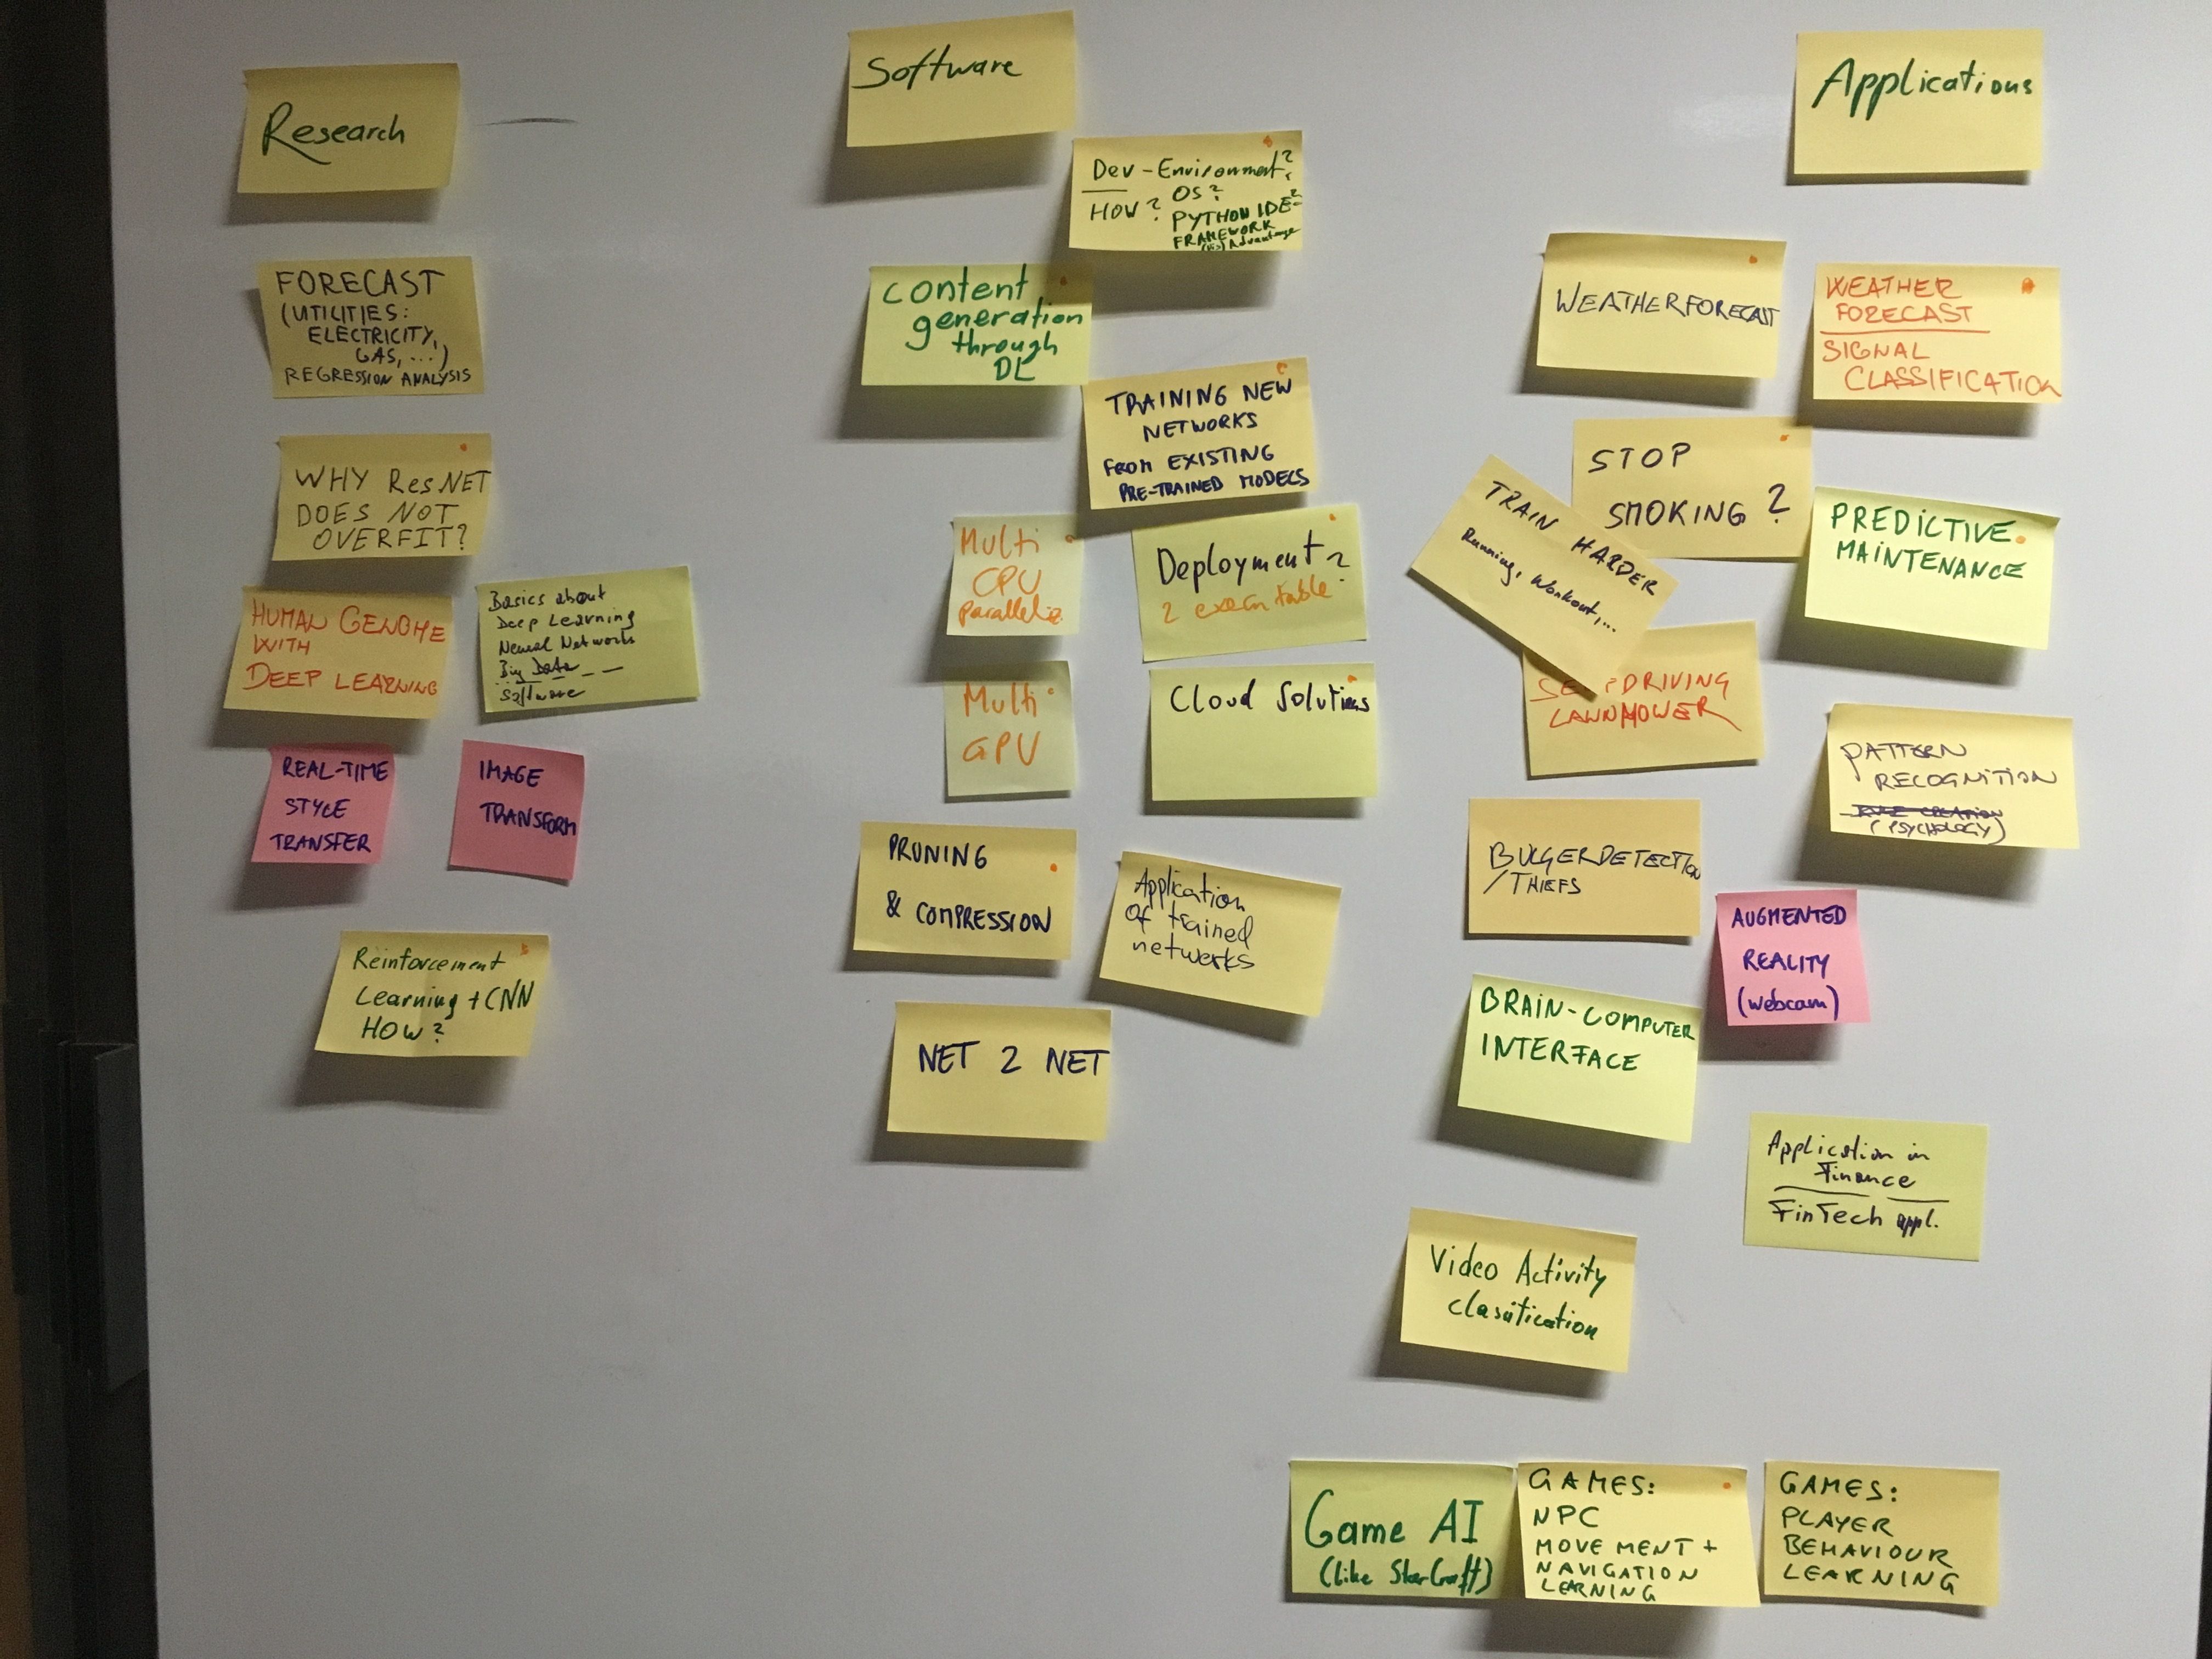 Research
FORECAST
(UTILITIES:
ELECTRICITY,
GAS, ...)
REGRESSION ANALYSIS
WHY ResNET
DOES NOT
OVERFIT?
HUMAN GENOME
WITH
DEEP LEARNING
Basics about
Deep Learning
Neural Networks
Big Data
Software
REAL-TIME
STYLE
TRANSFER
IMAGE
TRANSFORM
Reinforcement
Learning + CNN
HOW?
Software
Dev-Environment?
HOW? OS?
PYTHON IDE?
FRAMEWORK
(Dis)Advantage
content
generation
through
DL
TRAINING NEW
NETWORKS
FROM EXISTING
PRE-TRAINED MODELS
Multi
CPU
Deployment?
2 executable
Multi
GPU
Cloud Solutions
PRUNING
& COMPRESSION
Application
of trained
networks
NET 2 NET
Applications
WEATHERFORECAST
WEATHER
FORECAST
SIGNAL
CLASSIFICATION
STOP
SMOKING?
TRAIN HARDER
Running, Workout,...
PREDICTIVE
MAINTENANCE
DRIVING
LAWNMOWER
PATTERN
RECOGNITION
(PSYCHOLOGY)
BULGERDETECTION
/THIEFS
AUGMENTED
REALITY
(webcam)
BRAIN-COMPUTER
INTERFACE
Application in
Finance
FinTech appl.
Video Activity
clasification
Game AI
(like StarCraft)
GAMES:
NPC
MOVEMENT +
NAVIGATION
LEARNING
GAMES:
PLAYER
BEHAVIOUR
LEARNING